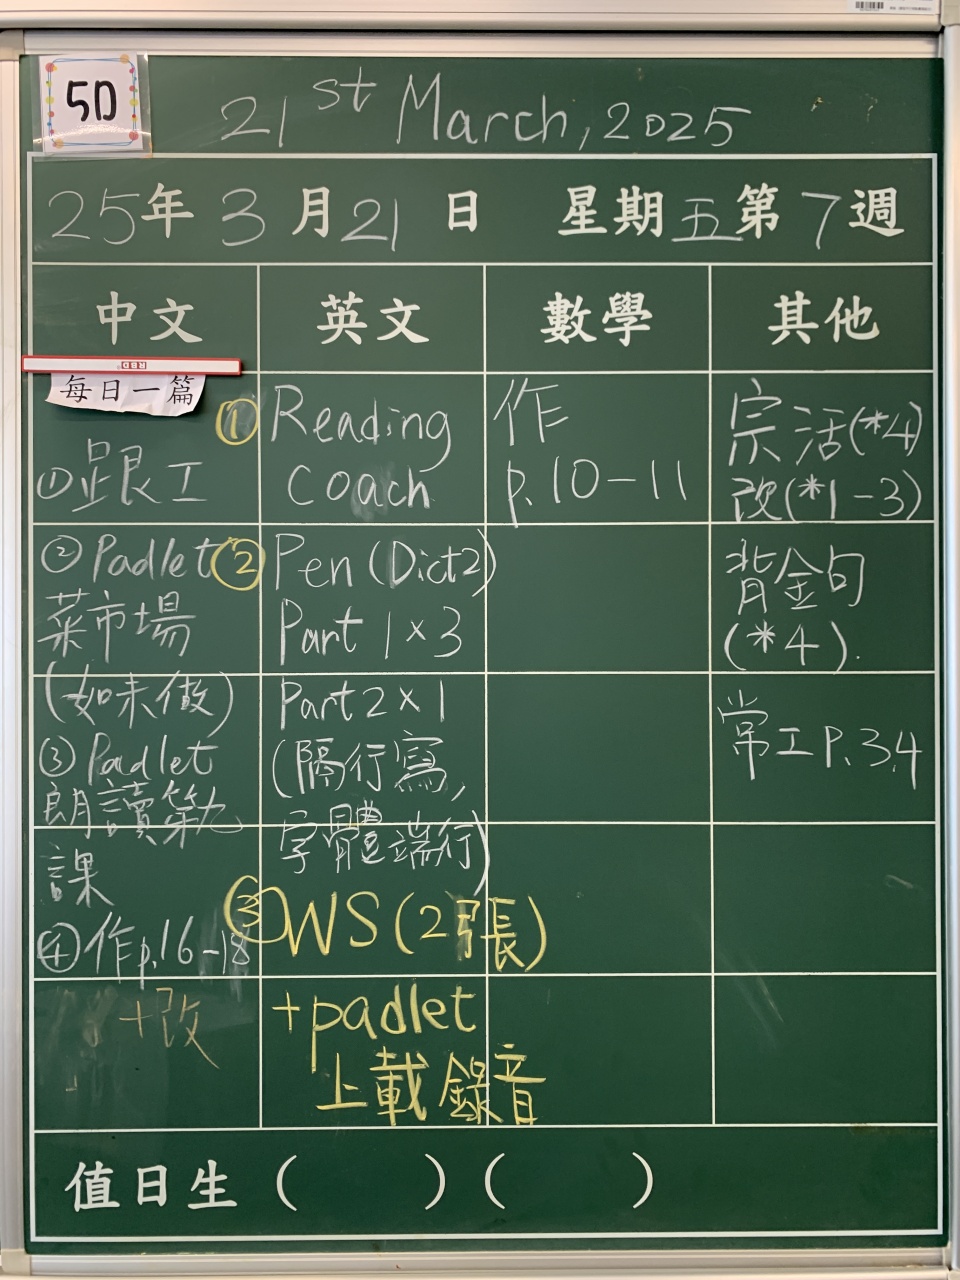 5D
21st March, 2025
25年3月21日 星期五第7週
中文
每日一篇
①跟工
②Padlet
菜市場
(如未做)
③Padlet
朗讀第九
課
④作p.16-18
+改
英文
①Reading
Coach
②Pen (Dict2)
Part 1×3
Part 2×1
(隔行寫,
字體端行)
③WS(2張)
+padlet
上載錄音
數學
作
p.10-11
其他
宗活(*4)
改(*1-3)
背金句
(*4).
常工P.3,4
值日生 ( ) ( )